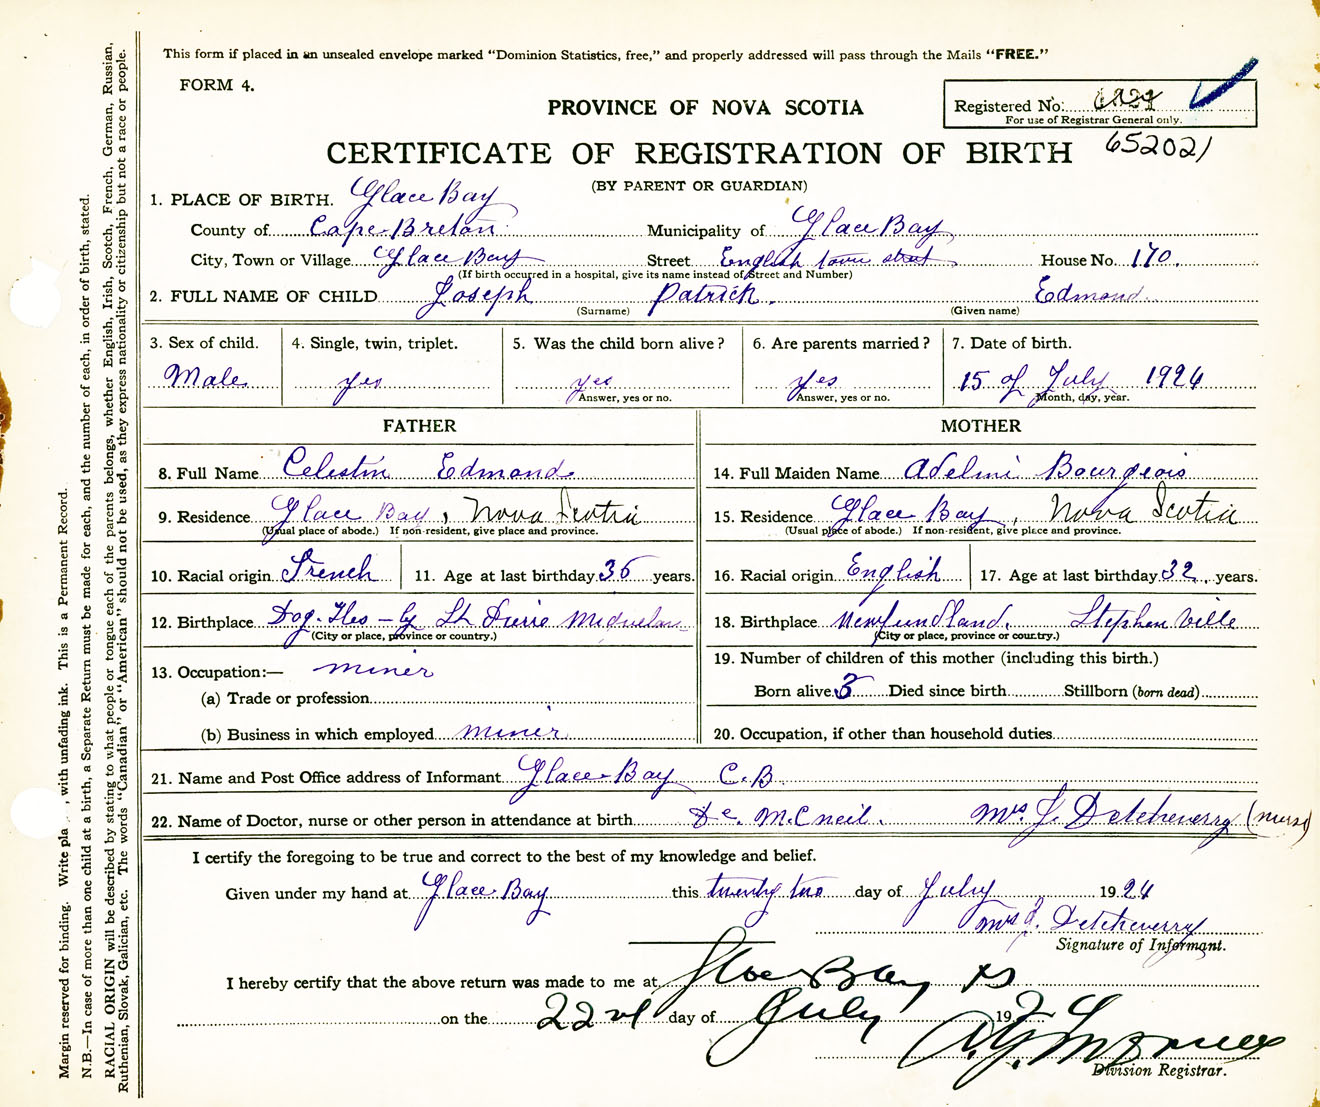 This form if placed in an unsealed envelope marked "Dominion Statistics, free," and properly addressed will pass through the Mails "FREE."
FORM 4.
Registered No:
For use of Registrar General only.
PROVINCE OF NOVA SCOTIA
652021
CERTIFICATE OF REGISTRATION OF BIRTH
(BY PARENT OR GUARDIAN)
1. PLACE OF BIRTH. Glace Bay
County of Cape Breton Municipality of Glace Bay
City, Town or Village Glace Bay Street English town street House No. 170.
(If birth occurred in a hospital, give its name instead of Street and Number)
2. FULL NAME OF CHILD Joseph Patrick. Edmond.
(Surname) (Given name)
3. Sex of child. 4. Single, twin, triplet. 5. Was the child born alive? 6. Are parents married? 7. Date of birth.
Male yes yes yes 15 of July 1924
Answer, yes or no. Answer, yes or no. Month, day, year.
FATHER MOTHER
8. Full Name Celestin Edmond 14. Full Maiden Name Adelmi Bourgeois
9. Residence Glace Bay, Nova Scotia 15. Residence Glace Bay, Nova Scotia
(Usual place of abode.) If non-resident, give place and province. (Usual place of abode.) If non-resident, give place and province.
10. Racial origin French 11. Age at last birthday 36 years. 16. Racial origin English 17. Age at last birthday 32 years.
12. Birthplace Dog. Iles - St Pierre Miquelon 18. Birthplace Newfundland. Stephen Ville
(City or place, province or country.) (City or place, province or country.)
13. Occupation:— miner 19. Number of children of this mother (including this birth.)
(a) Trade or profession Born alive 3 Died since birth Stillborn (born dead)
(b) Business in which employed miner 20. Occupation, if other than household duties
21. Name and Post Office address of Informant Glace Bay C.B
22. Name of Doctor, nurse or other person in attendance at birth McNeil. Mrs J. Detcheverry (nurse)
I certify the foregoing to be true and correct to the best of my knowledge and belief.
Given under my hand at Glace Bay this twenty two day of July 1924
Mrs J. Detcheverry
Signature of Informant.
I hereby certify that the above return was made to me at Glace Bay NS
on the 22nd day of July 1924
Division Registrar.
Margin reserved for binding. Write pla , with unfading ink. This is a Permanent Record.
N.B.—In case of more than one child at a birth, a Separate Return must be made for each, and the number of each, in order of birth, stated.
RACIAL ORIGIN will be described by stating to what people or tongue each of the parents belongs, whether English, Irish, Scotch, French, German, Russian,
Ruthenian, Slovak, Galician, etc. The words "Canadian" or "American" should not be used, as they express nationality or citizenship but not a race or people.